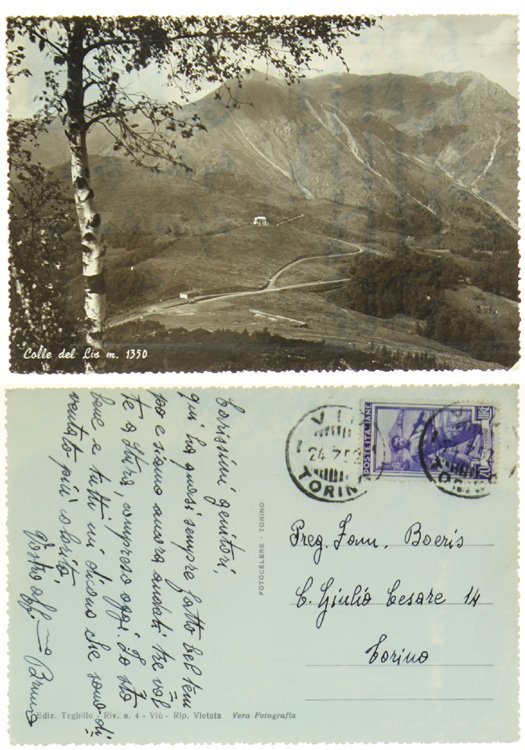 Colle del Lis m. 1350
Carissimi genitori,
qui ha quasi sempre fatto bel tem
po e siamo ancora andati tre vol
te a Stura, compreso oggi. Io sto
bene e tutti mi dicono che sono di-
ventato più colorito.
Vostro aff.
Bruno
FOTOCELERE - TORINO
VIÙ
24.7.52
TORINO
POSTE ITALIANE
Preg. Fam. Boeris
C. Giulio Cesare 14
Torino
Ediz. Teghillo - Riv. n. 4 - Viù - Rip. Vietata Vera Fotografia